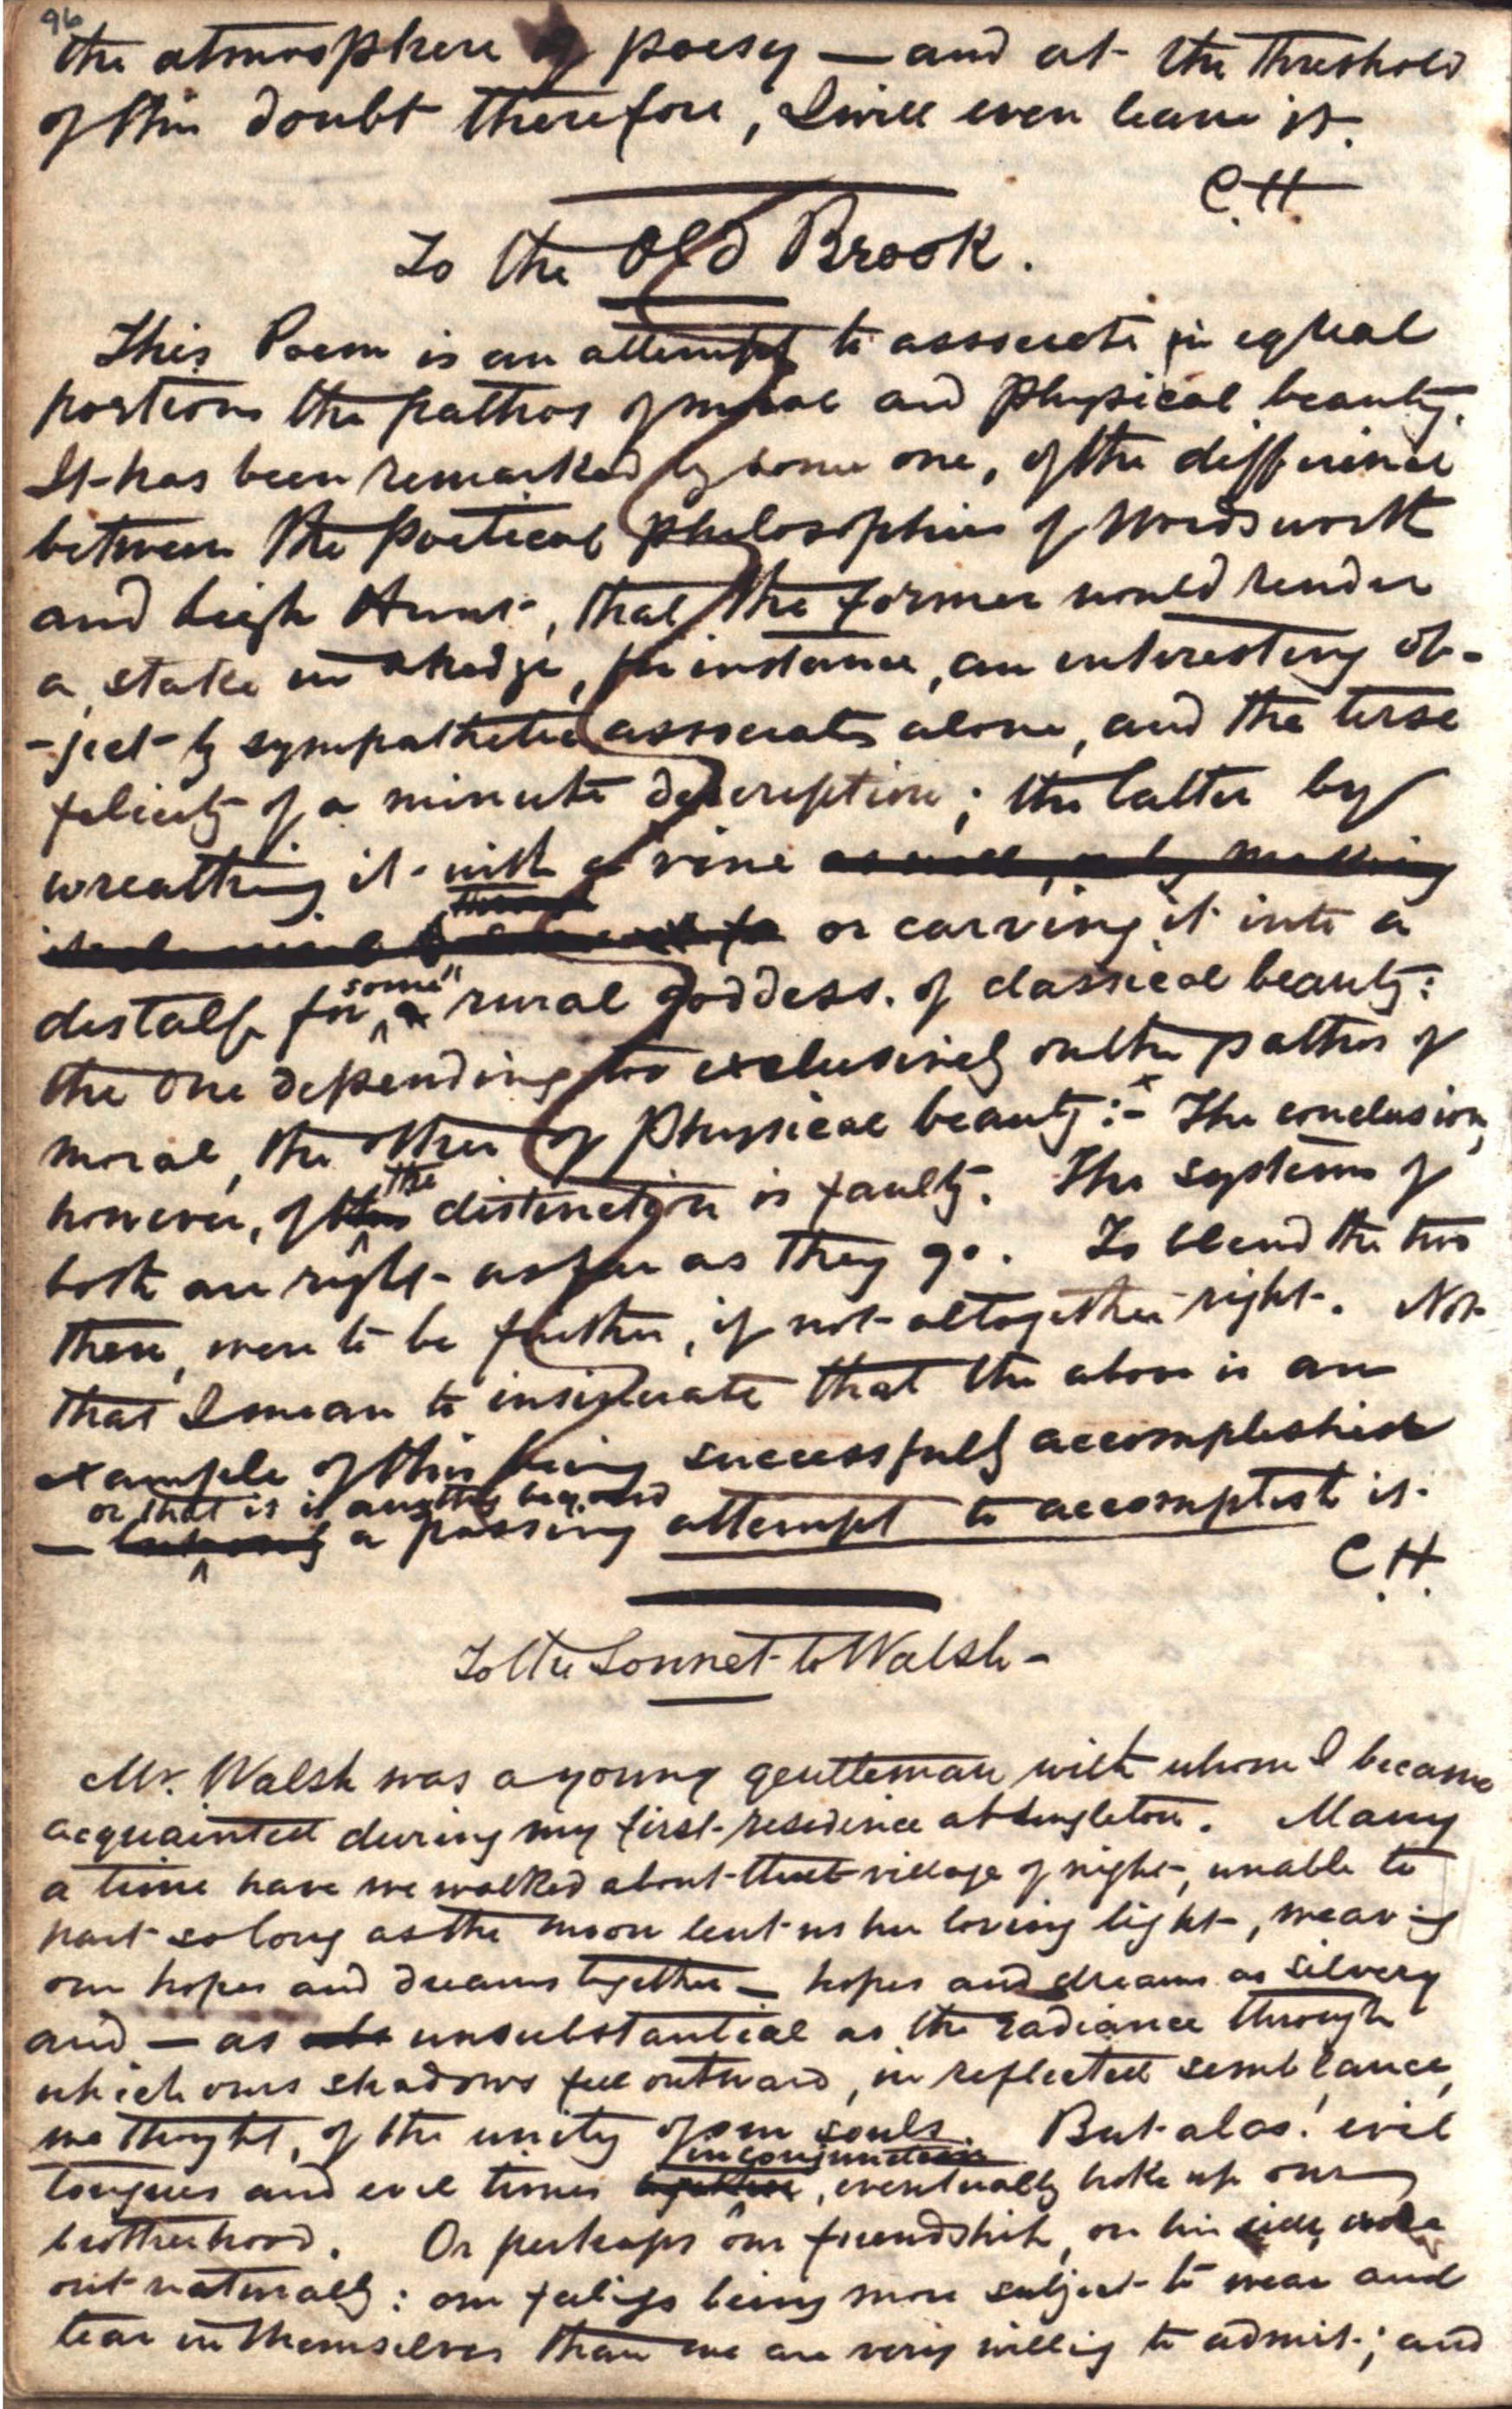 96
the atmosphere of poesy — and at the threshold
of this doubt therefore, I will even leave it.
C.H.
To the Old Brook.
This Poem is an attempt to associate in equal
portions the pathos of moral and physical beauty.
It has been remarked by some one, of the difference
between the poetical philosophies of Wordsworth
and Leigh Hunt, that the former would render
a stake in a hedge, for instance, an interesting ob-
-ject by sympathetic associates alone, and the terse
felicity of a minute description; the latter by
wreathing it with a vine as well, or by making
or carving it into a
distaff for some rural goddess. of classical beauty:
the one depending too exclusively on the pathos of
moral, the other of physical beauty:- x The conclusion,
however, of this the distinction is faulty. The systems of
both are right as far as they go. To blend the two
then, were to be further, if not altogether right. Not
that I mean to insinuate that the above is an
example of this being successfully accomplished
or that is is anything beyond
— a passing attempt to accomplish it.
C.H.
To the Sonnet to Walsh -
Mr. Walsh was a young gentleman with whom I became
acquainted during my first residence at Singleton. Many
a time have we walked about that village of night, unable to
part so long as the moon lent us her loving light, weaving
our hopes and dreams together — hopes and dreams as silvery
and — as unsubstantial as the radiance through
which ours shadows fell outward, in reflected semblance,
me thought, of the unity of our souls. But alas! evil
in conjunction
tongues and evil times together, eventually broke up our
brotherhood. Or perhaps our friendship, on his side, wore
out naturally: our feelings being more subject to wear and
tear in themselves than we are very willing to admit; and